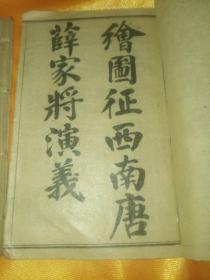 繪圖征西南唐
薛家將演義